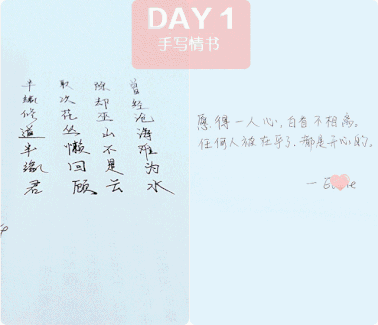 DAY 1
手写情书
曾经沧海难为水
除却巫山不是云
取次花丛懒回顾
半缘修道半缘君
愿得一人心，白首不相离。
任何人被在乎了，都是开心的。